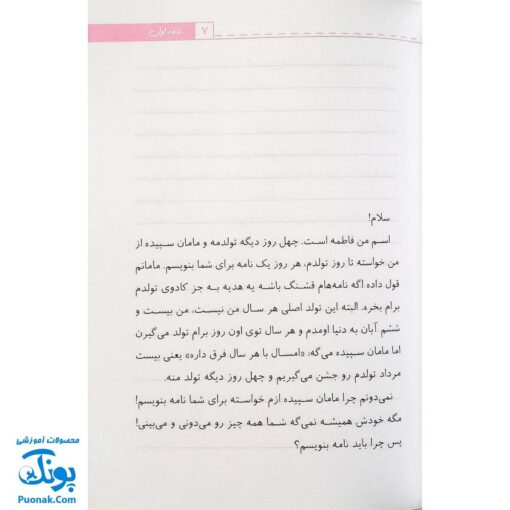 ۷ نامه اول
سلام!
اسم من فاطمه است. چهل روز دیگه تولدمه و مامان سپیده از
من خواسته تا روز تولدم، هر روز یک نامه برای شما بنویسم. مامانم
قول داده اگه نامه‌هام قشنگ باشه یه هدیه به جز کادوی تولدم
برام بخره. البته این تولد اصلی هر سال من نیست، من بیست و
ششم آبان به دنیا اومدم و هر سال توی اون روز برام تولد می‌گیرن
اما مامان سپیده می‌گه: «امسال با هر سال فرق داره» یعنی بیست
مرداد تولدم رو جشن می‌گیریم و چهل روز دیگه تولد منه.
نمی‌دونم چرا مامان سپیده ازم خواسته برای شما نامه بنویسم!
مگه خودش همیشه نمی‌گه شما همه چیز رو می‌دونی و می‌بینی!
پس چرا باید نامه بنویسم؟
محصولات آموزشی
پونک
Puonak.Com